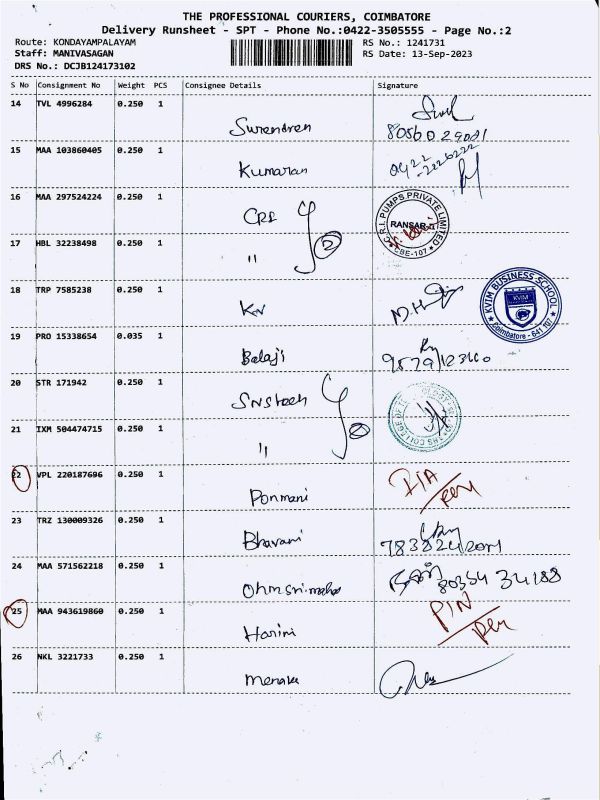 THE PROFESSIONAL COURIERS, COIMBATORE
Delivery Runsheet - SPT - Phone No.:0422-3505555 - Page No.:2
Route: KONDAYAMPALAYAM RS No.: 1241731
Staff: MANIVASAGAN RS Date: 13-Sep-2023
DRS No.: DCJB124173102
S No Consignment No Weight PCS Consignee Details Signature
14 TVL 4996284 0.250 1
Surendren
15 MAA 103860405 0.250 1
Kumaran 0422
16 MAA 297524224 0.250 1
CRI C.R.I. PUMPS PRIVATE LIMITED
17 HBL 32238498 0.250 1
" 2 CBE-107
18 TRP 7585238 0.250 1
KVIM BUSINESS SCHOOL
KVIM
Coimbatore - 641 107
19 PRO 15338654 0.035 1
Balaji
20 STR 171942 0.250 1
21 IXM 504474715 0.250 1
"
22 VPL 220187696 0.250 1
Ponmani
23 TRZ 130009326 0.250 1
Bhavani
24 MAA 571562218 0.250 1
80354 34188
25 MAA 943619860 0.250 1
Harini PIN
26 NKL 3221733 0.250 1